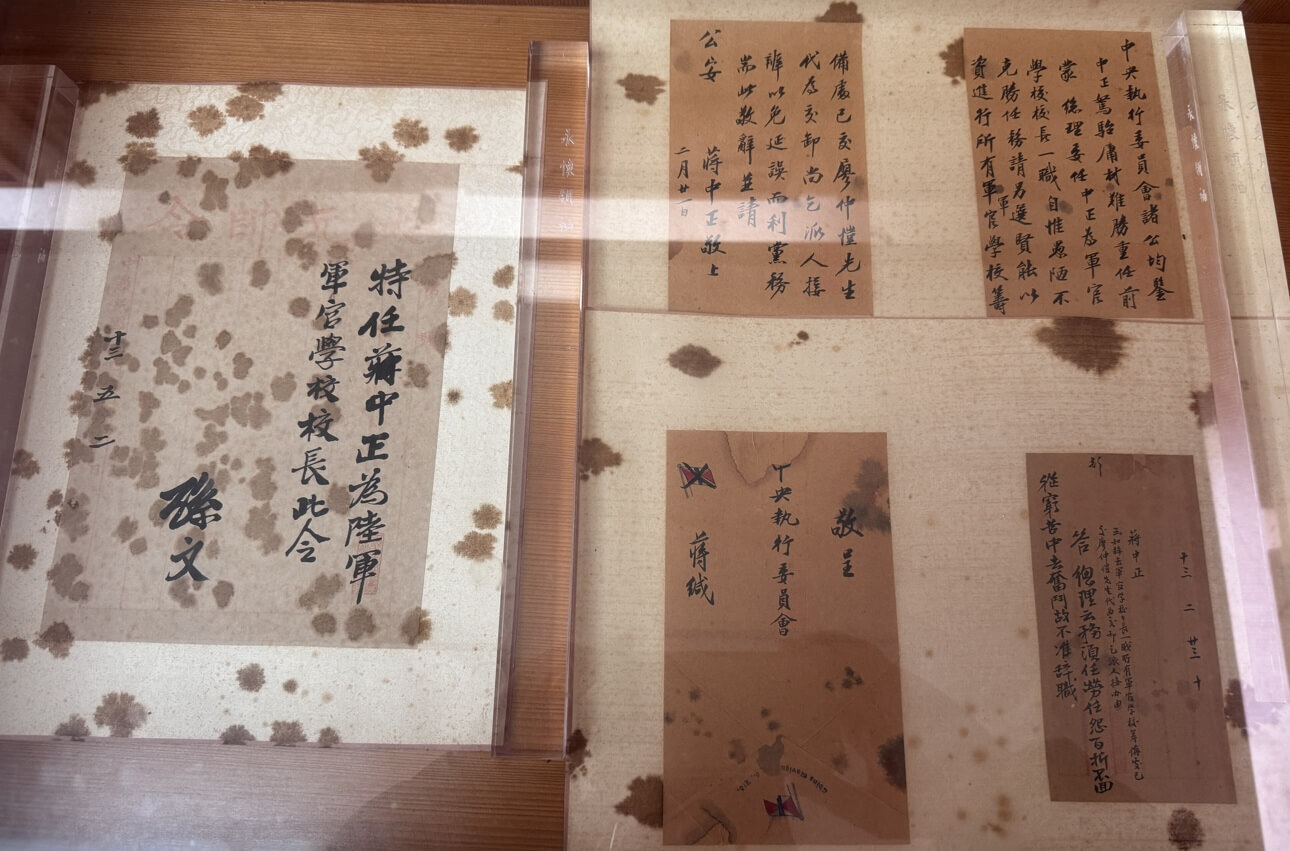 特任蔣中正為陸軍
軍官學校校長此令
孫文
十三 五 二
中央執行委員會諸公均鑒
中正駑駘庸材難勝重任前
蒙 總理委任中正為軍官
學校校長一職自惟愚陋不
克勝任務請另選賢能以
資進行所有軍官學校籌
備處已交廖仲愷先生
代為交卸尚乞派人接
辦以免延誤而利黨務
耑此敬辭並請
公安
蔣中正敬上
二月廿一日
敬呈
中央執行委員會
蔣緘
十三 二 廿三 十
蔣中正
答 總理云務須任勞任怨百折不回
從窮苦中去奮鬥故不准辭職
永懷領袖